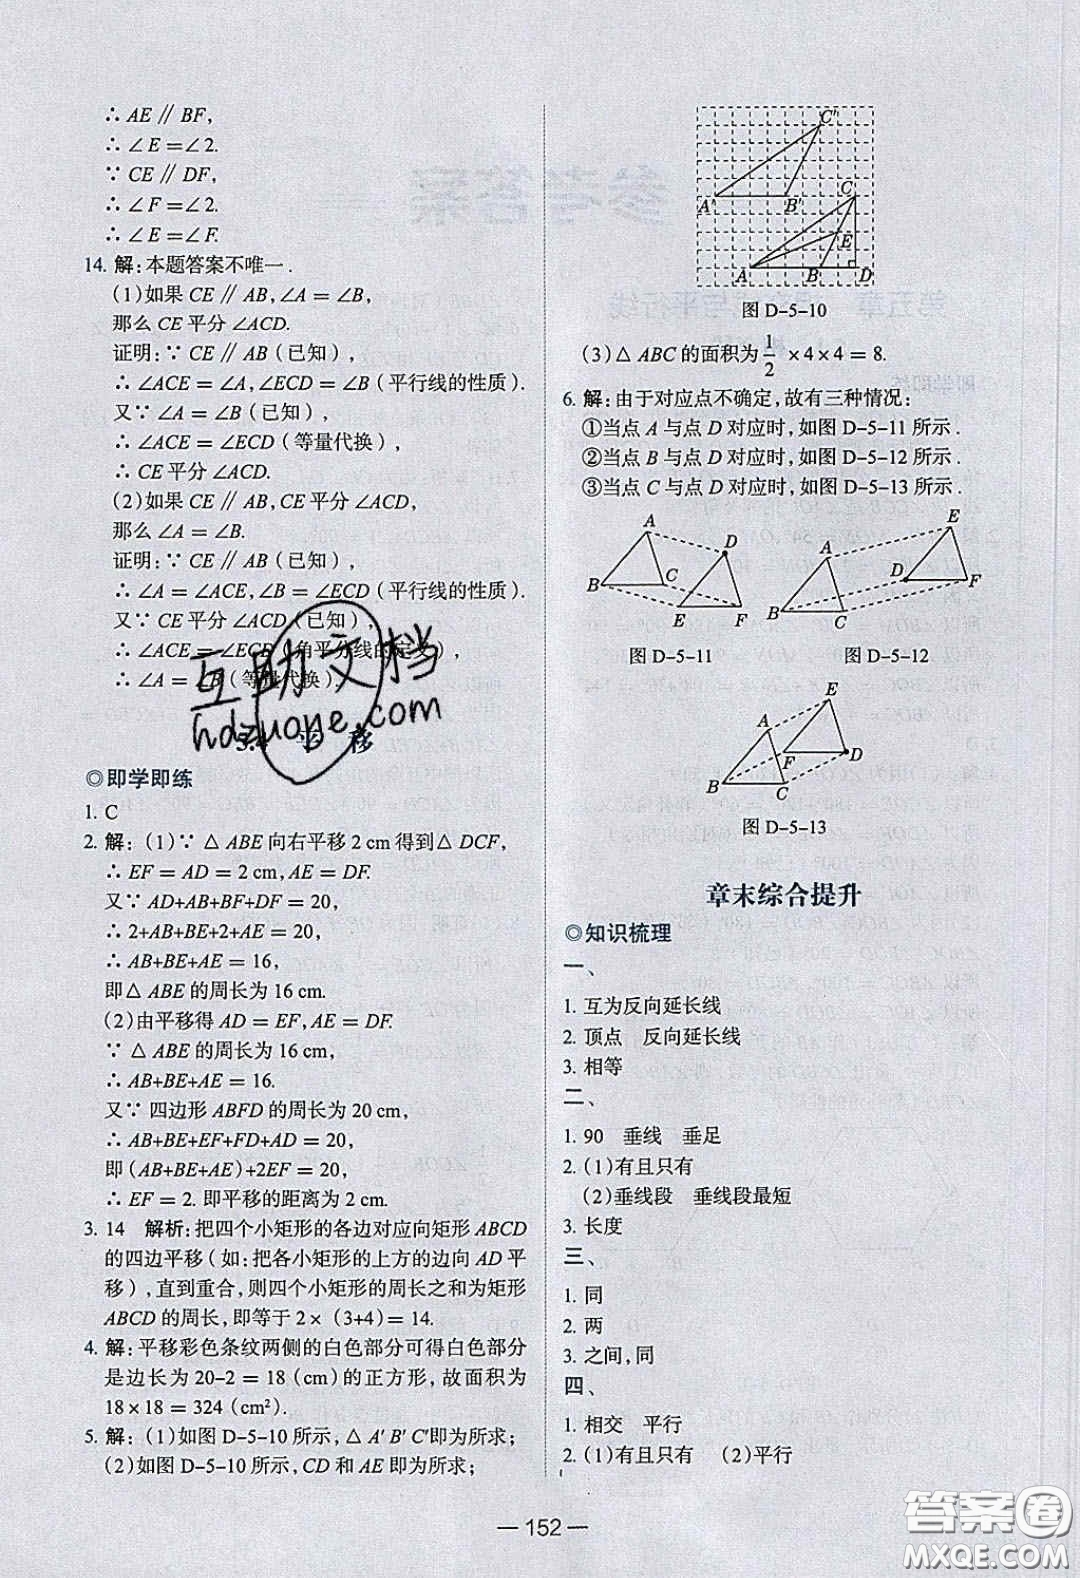 ∴ AE ∥ BF,
∴ ∠E=∠2.
∵ CE ∥ DF,
∴ ∠F = ∠2.
∴ ∠E=∠F.
14. 解:本题答案不唯一.
(1)如果 CE ∥ AB,∠A = ∠B,
那么 CE 平分 ∠ACD.
证明:∵ CE ∥ AB(已知),
∴ ∠ACE = ∠A,∠ECD = ∠B(平行线的性质).
又∵ ∠A = ∠B(已知),
∴ ∠ACE = ∠ECD(等量代换),
∴ CE 平分 ∠ACD.
(2)如果 CE ∥ AB,CE 平分 ∠ACD,
那么 ∠A = ∠B.
证明:∵ CE ∥ AB(已知),
∴ ∠A = ∠ACE,∠B = ∠ECD(平行线的性质).
又∵ CE 平分 ∠ACD(已知),
∴ ∠ACE = ∠ECD(角平分线的定义),
∴ ∠A = ∠B(等量代换).
互助文档
hdzuoye.com
5.4 平 移
◎即学即练
1. C
2. 解:(1)∵ △ ABE 向右平移 2 cm 得到△ DCF,
∴ EF = AD = 2 cm,AE = DF.
又∵ AD+AB+BF+DF = 20,
∴ 2+AB+BE+2+AE = 20,
∴ AB+BE+AE = 16,
即△ ABE 的周长为 16 cm.
(2)由平移得 AD = EF,AE = DF.
∵ △ ABE 的周长为 16 cm,
∴ AB+BE+AE = 16.
又∵ 四边形 ABFD 的周长为 20 cm,
∴ AB+BE+EF+FD+AD = 20,
即(AB+BE+AE)+2EF = 20,
∴ EF = 2. 即平移的距离为 2 cm.
3. 14 解析:把四个小矩形的各边对应向矩形 ABCD
的四边平移(如:把各小矩形的上方的边向 AD 平
移),直到重合,则四个小矩形的周长之和为矩形
ABCD 的周长,即等于 2×(3+4)= 14.
4. 解:平移彩色条纹两侧的白色部分可得白色部分
是边长为 20-2 = 18(cm)的正方形,故面积为
18×18 = 324(cm²).
5. 解:(1)如图 D-5-10 所示,△ A′ B′ C′即为所求;
(2)如图 D-5-10 所示,CD 和 AE 即为所求;
C′
A′ B′ C
E
A B D
图 D-5-10
(3)△ ABC 的面积为 1/2 ×4×4 = 8.
6. 解:由于对应点不确定,故有三种情况:
①当点 A 与点 D 对应时,如图 D-5-11 所示.
②当点 B 与点 D 对应时,如图 D-5-12 所示.
③当点 C 与点 D 对应时,如图 D-5-13 所示.
A D
B C
E F
图 D-5-11
E
A
D F
B C
图 D-5-12
E
A
F D
B C
图 D-5-13
章末综合提升
◎知识梳理
一、
1. 互为反向延长线
2. 顶点 反向延长线
3. 相等
二、
1. 90 垂线 垂足
2. (1)有且只有
(2)垂线段 垂线段最短
3. 长度
三、
1. 同
2. 两
3. 之间,同
四、
1. 相交 平行
2. (1)有且只有 (2)平行
— 152 —
答案圈
MXQE.COM